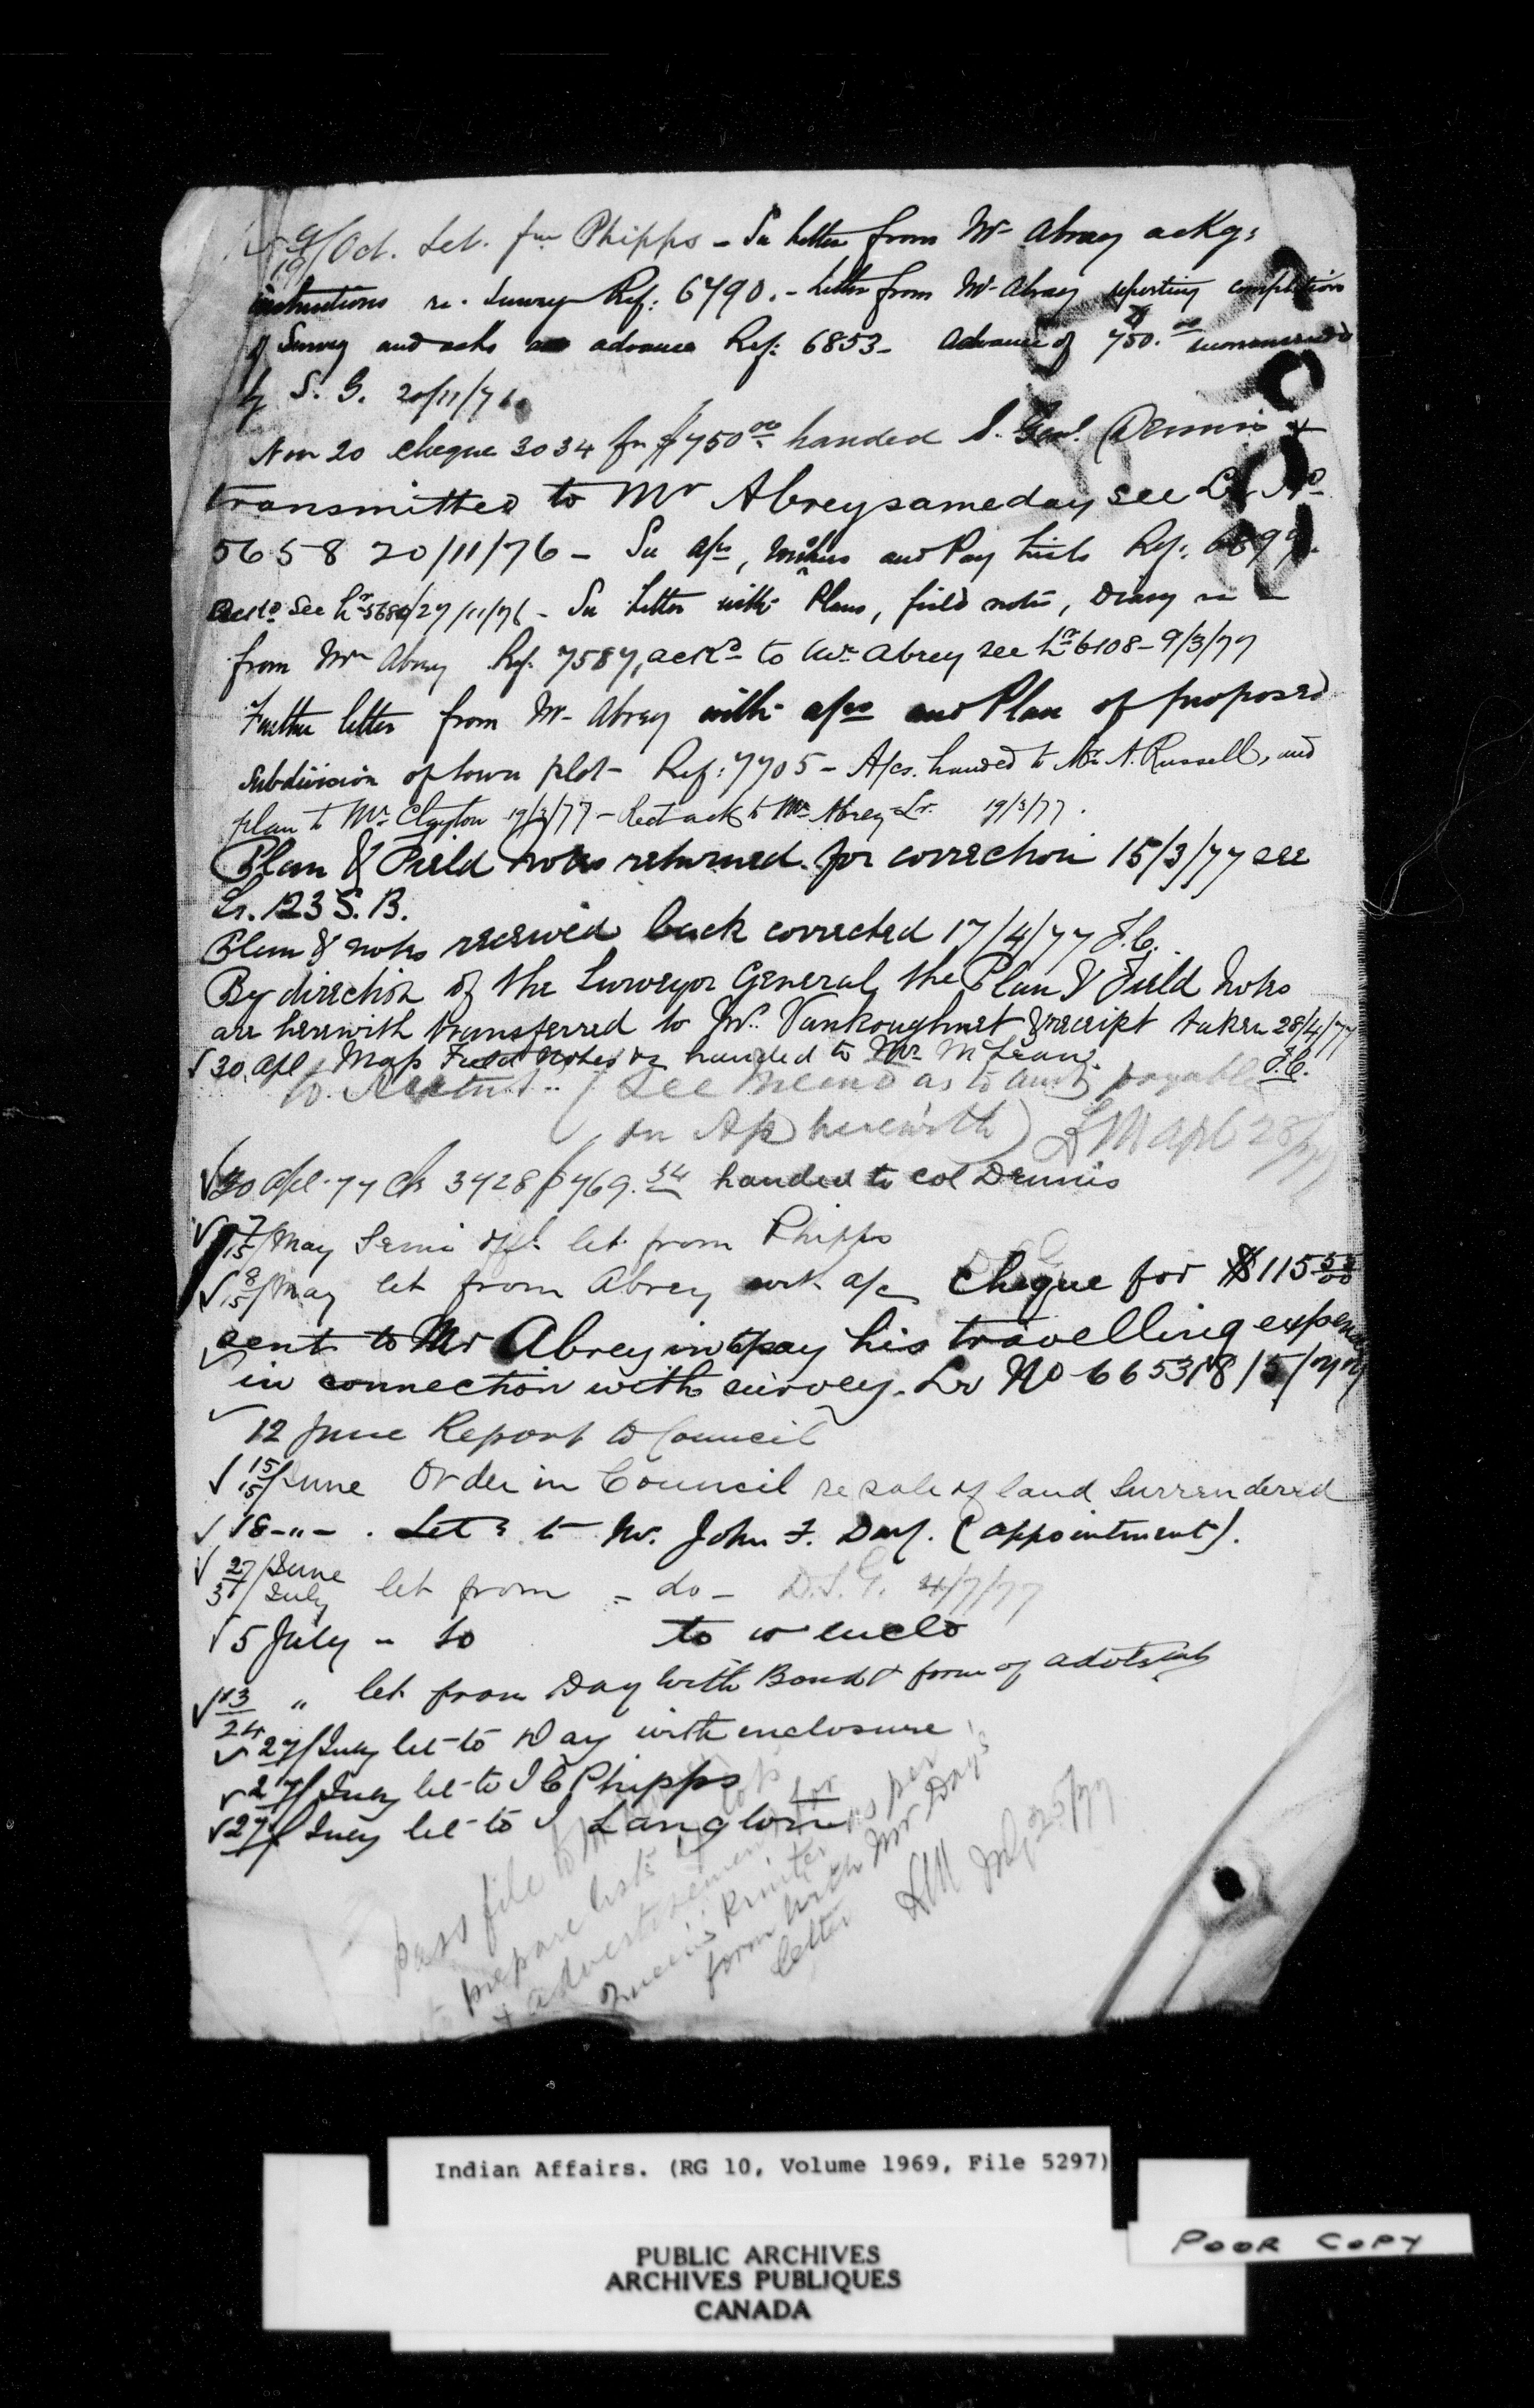 9/19/Oct. Let. fm Phipps – See letter from Mr Abrey ackg:
instructions re. Survey Ref: 6790. – Letter from Mr Abrey reporting completion
of Survey and asks an advance Ref: 6853 – Advance of $750.00 recommended
by S. G. 20/11/76
Nov 20 Cheque 3034 for $750.00 handed S. Genl. Dennis &
transmitted to Mr Abrey same day see Lr No
5658 20/11/76 – See a/cs, Vouchers and Pay Lists Ref: 6899.
Ackd See Lr 5686/27/11/76 – See Letter with Plans, field notes, Diary
from Mr Abrey Ref: 7587, ackd to Mr Abrey see Lr 6108 – 9/3/77
Further letter from Mr Abrey with a/cs and Plan of proposed
Subdivision of town plot – Ref: 7705 – A/cs. handed to Mr A. Russell, and
plan to Mr Clayton 19/3/77 – Rect ack to Mr Abrey – Lr. 19/3/77.
Plan & Field notes returned for correction 15/3/77 see
Lr. 123 S. B.
Plan & notes received back corrected 17/4/77 J.C.
By direction of the Surveyor General, the Plan & Field Notes
are herewith transferred to Mr. Vankoughnet & receipt taken 28/4/77
J.C.
√ 30 Apl Map Field Notes handed to Mr McLean
(See memo as to amt payable
on A/c herewith) Apl 28/77
√ 30 Apl. 77 Ch 3428 $769.54 handed to Col Dennis
√ 7/15/May Semi offl. let from Phipps
√ 8/15/May let from Abrey with a/c Cheque for $115 50/00
sent to Mr Abrey in pay his travelling expenses
in connection with survey. Lr No 6653 18/5/77
√ 12 June Report to Council
√ 15/15/June Order in Council re sale of land Surrendered
√ 18 – " – . Letr to Mr. John F. Day. (appointment).
√ 27/June 3/July let from – do – D.S.G. 4/7/77
√ 5 July – to w enclo
√ 13/24 " let from Day with Bond & form of advtsmt
√ 27/July let to Day with enclosure
√ 27/July let to J C Phipps
√ 27/July let to J Langton
pass file to
to prepare lists of lots
& advertisement for
Queen's Printer as per
form with Mr Day's
letter July 25/77
Indian Affairs. (RG 10, Volume 1969, File 5297)
PUBLIC ARCHIVES
ARCHIVES PUBLIQUES
CANADA
POOR COPY